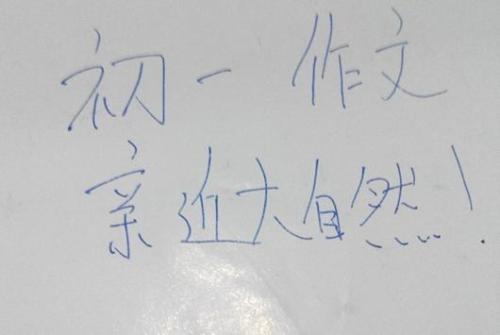 初一 作文
亲近大自然！